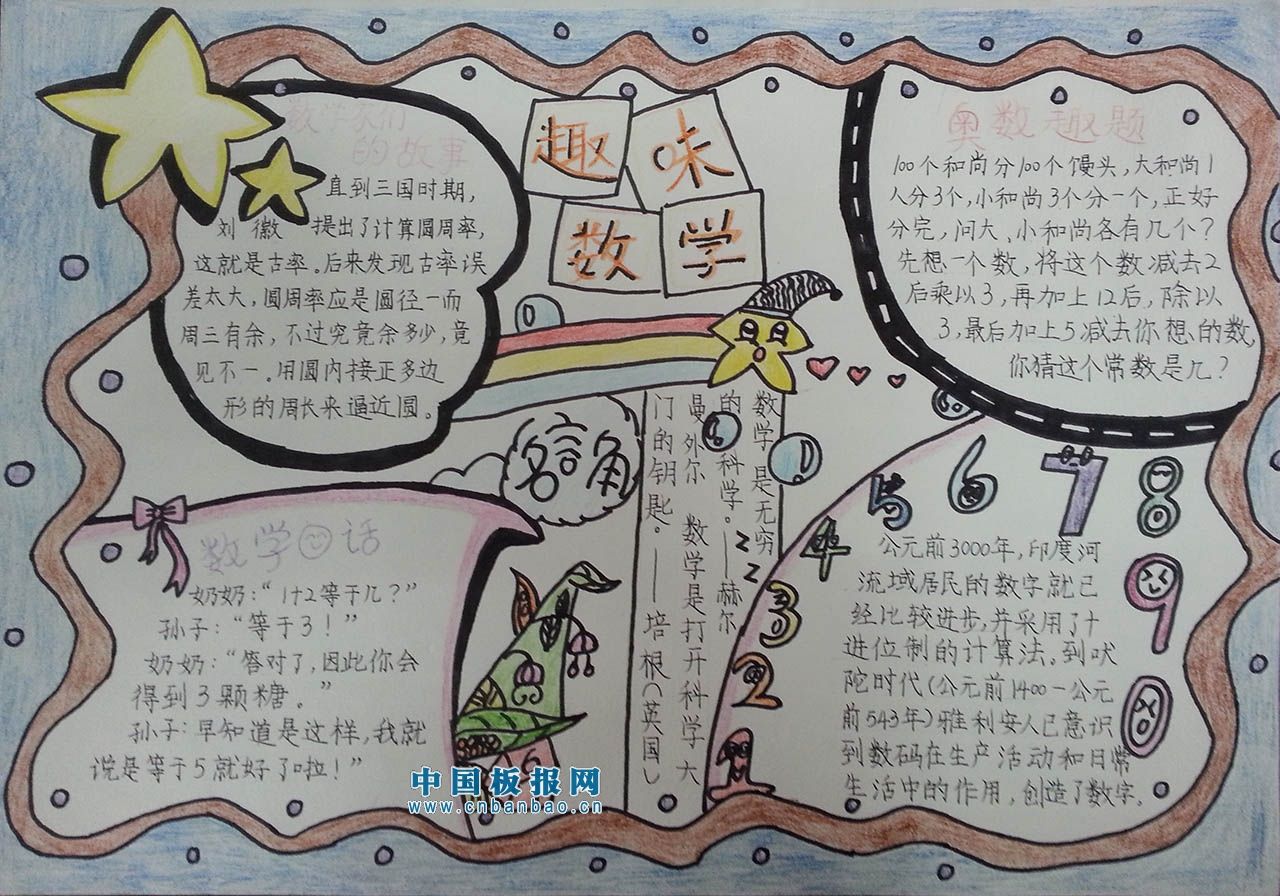 趣味
数学
数学家们
的故事
直到三国时期,
刘徽 提出了计算圆周率,
这就是古率。后来发现古率误
差太大,圆周率应是圆径一而
周三有余,不过究竟余多少,竟
见不一。用圆内接正多边
形的周长来逼近圆。
奥数趣题
100个和尚分100个馒头,大和尚1
人分3个,小和尚3个分一个,正好
分完,问大、小和尚各有几个?
先想一个数,将这个数减去2
后乘以3,再加上12后,除以
3,最后加上5减去你想的数,
你猜这个常数是几?
名言角
数学是无穷
的科学。——赫尔
曼外尔 数学是打开科学大
门的钥匙。——培根(英国)
z
z
数学 话
奶奶:“1+2等于几?”
孙子:“等于3!”
奶奶:“答对了,因此你会
得到3颗糖。”
孙子:早知道是这样,我就
说是等于5就好了啦!”
1
2
3
4
5
6
7
8
9
0
公元前3000年,印度河
流域居民的数字就已
经比较进步,并采用了十
进位制的计算法。到吠
陀时代(公元前1400-公元
前543年)雅利安人已意识
到数码在生产活动和日常
生活中的作用,创造了数字。
中国板报网
www.cnbanbao.cn